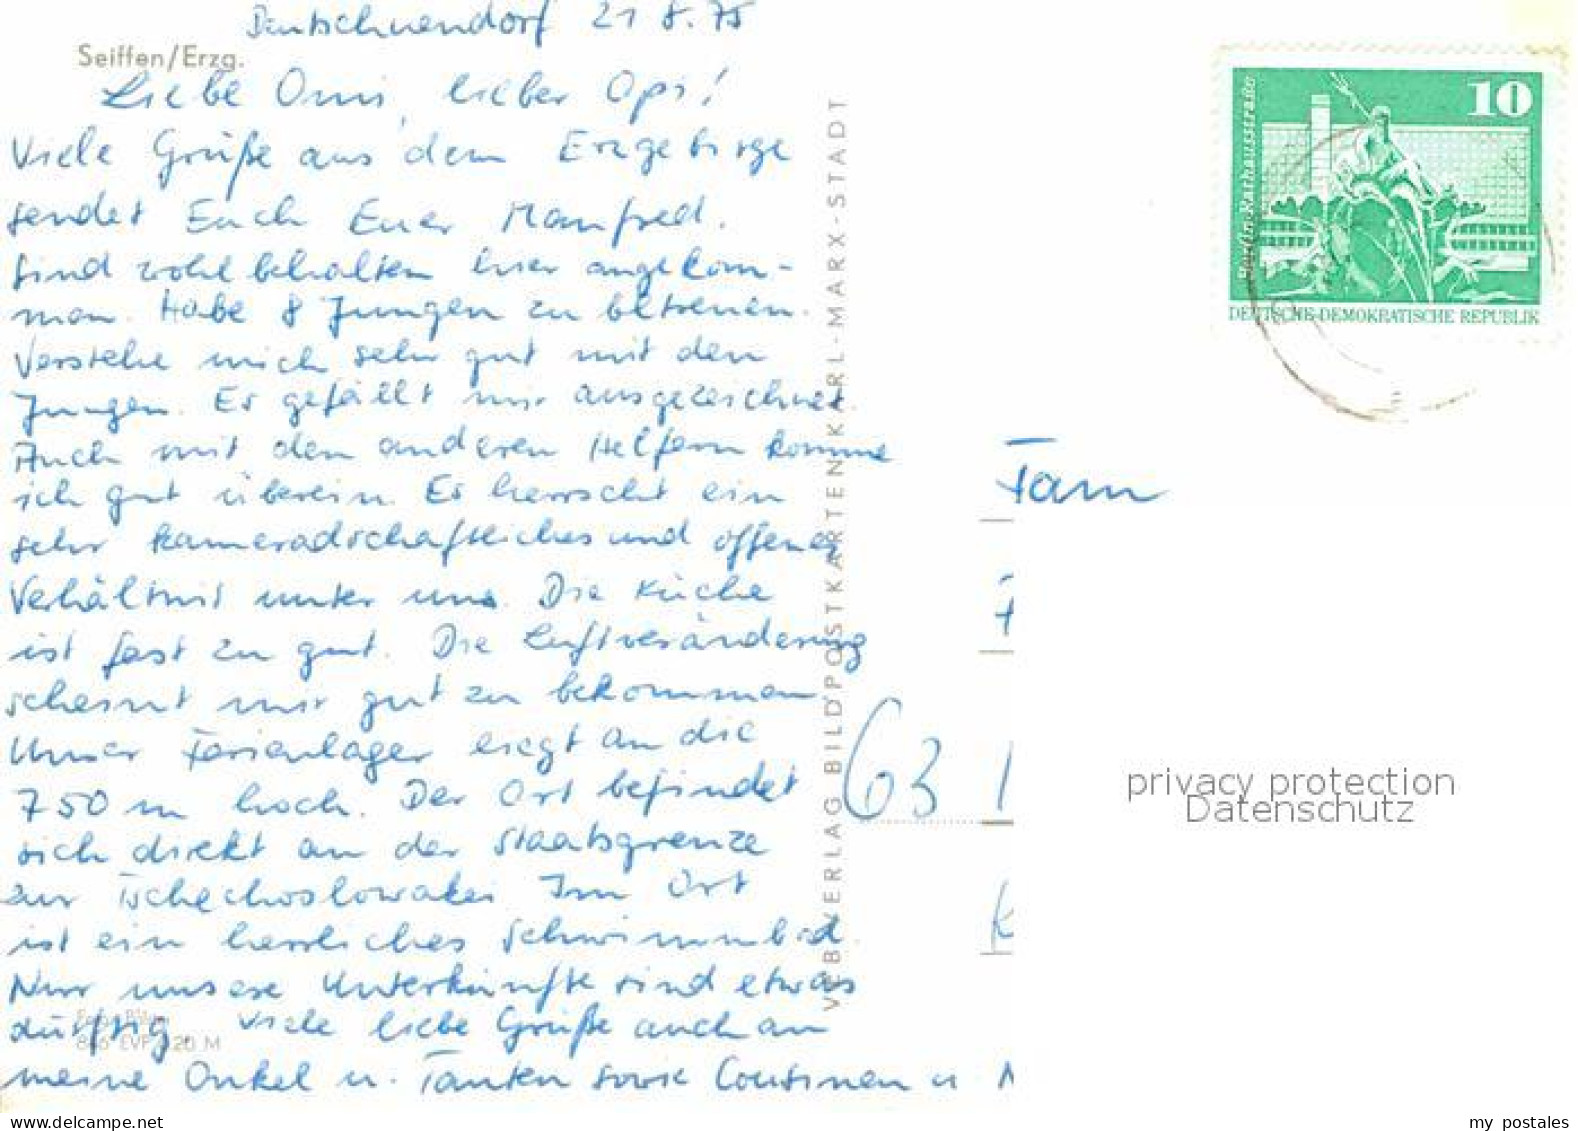 Deutschneudorf 21.8.75
Seiffen/Erzg.
Liebe Omi, lieber Opi!
Viele Grüße aus dem Erzgebirge
sendet Euch Euer Manfred.
Sind wohlbehalten hier angekom-
men. Habe 8 Jungen zu betreuen.
Verstehe mich sehr gut mit den
Jungen. Es gefällt mir ausgezeichnet.
Auch mit den anderen Helfern komme
ich gut überein. Es herrscht ein
sehr kameradschaftliches und offenes
Verhältnis unter uns. Die Küche
ist fast zu gut. Die Luftveränderung
scheint mir gut zu bekommen.
Unser Ferienlager liegt an die
750 m hoch. Der Ort befindet
sich direkt an der Staatsgrenze
zur Tschechoslowakei. Im Ort
ist ein herrliches Schwimmbad.
Nur unsere Unterkünfte sind etwas
dürftig. Viele liebe Grüße auch an
meine Onkel u. Tanten sowie Cousinen u.
846 EVP 0,20 M
VEB VERLAG BILDPOSTKARTEN KARL-MARX-STADT
10
Berlin, Rathausstraße
DEUTSCHE DEMOKRATISCHE REPUBLIK
Fam
63
privacy protection
Datenschutz
my postales
delcampe.net